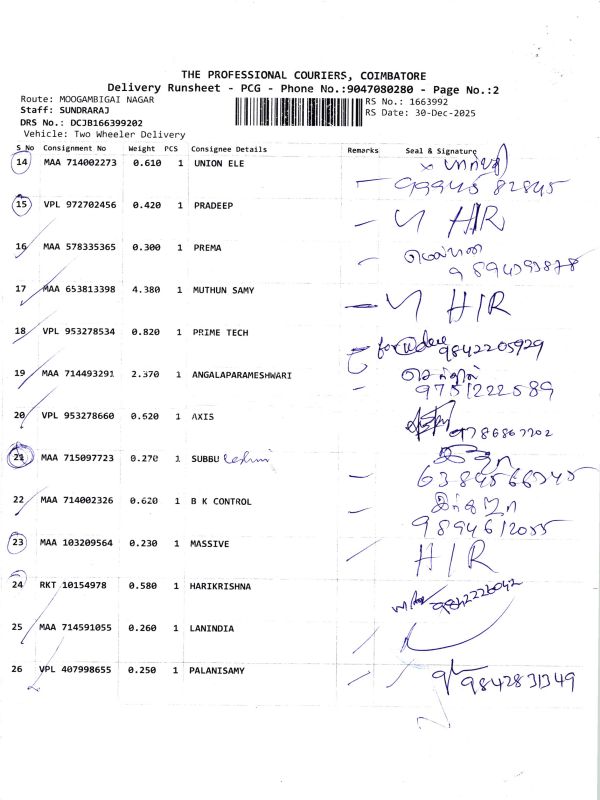 THE PROFESSIONAL COURIERS, COIMBATORE
Delivery Runsheet - PCG - Phone No.:9047080280 - Page No.:2
Route: MOOGAMBIGAI NAGAR RS No.: 1663992
Staff: SUNDRARAJ RS Date: 30-Dec-2025
DRS No.: DCJB166399202
Vehicle: Two Wheeler Delivery
S No Consignment No Weight PCS Consignee Details Remarks Seal & Signature
14 MAA 714002273 0.610 1 UNION ELE
9994582845
15 VPL 972702456 0.420 1 PRADEEP H/R
16 MAA 578335365 0.300 1 PREMA
9894393878
17 MAA 653813398 4.380 1 MUTHUN SAMY H/R
18 VPL 953278534 0.820 1 PRIME TECH for
9842205929
19 MAA 714493291 2.370 1 ANGALAPARAMESHWARI
9751222589
20 VPL 953278660 0.520 1 AXIS
9786867202
21 MAA 715097723 0.270 1 SUBBU
6384566345
22 MAA 714002326 0.620 1 B K CONTROL
9894612055
23 MAA 103209564 0.230 1 MASSIVE H/R
24 RKT 10154978 0.580 1 HARIKRISHNA
9842226042
25 MAA 714591055 0.260 1 LANINDIA
26 VPL 407998655 0.250 1 PALANISAMY
9842831349